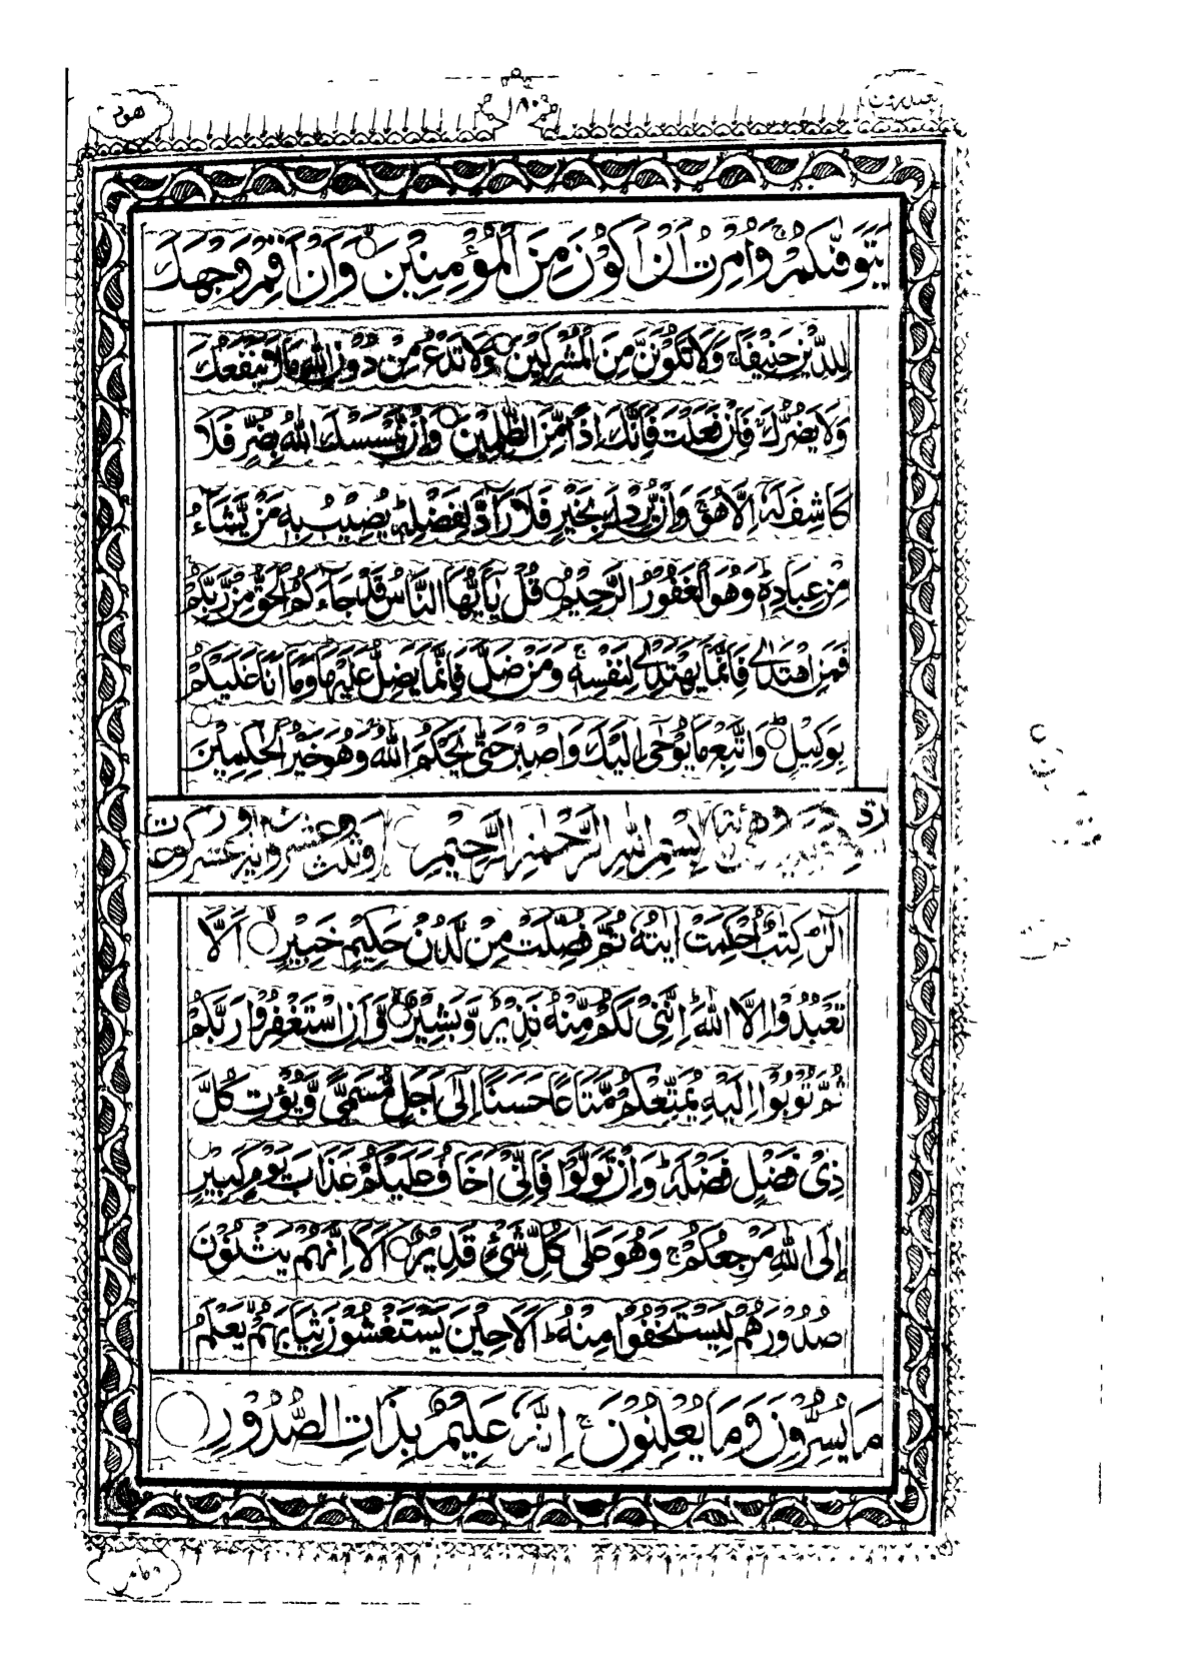 هود
١٨٠
يعتذرون
يَتَوَفّٰىكُمْ ۚ وَاُمِرْتُ اَنْ اَكُوْنَ مِنَ الْمُؤْمِنِيْنَ ۝ وَاَنْ اَقِمْ وَجْهَكَ
لِلدِّيْنِ حَنِيْفًا ۚ وَلَا تَكُوْنَنَّ مِنَ الْمُشْرِكِيْنَ ۝ وَلَا تَدْعُ مِنْ دُوْنِ اللّٰهِ مَا لَا يَنْفَعُكَ
وَلَا يَضُرُّكَ ۚ فَاِنْ فَعَلْتَ فَاِنَّكَ اِذًا مِّنَ الظّٰلِمِيْنَ ۝ وَاِنْ يَّمْسَسْكَ اللّٰهُ بِضُرٍّ فَلَا
كَاشِفَ لَهٗ اِلَّا هُوَ ۚ وَاِنْ يُّرِدْكَ بِخَيْرٍ فَلَا رَآدَّ لِفَضْلِهٖ ؕ يُصِيْبُ بِهٖ مَنْ يَّشَآءُ
مِنْ عِبَادِهٖ ؕ وَهُوَ الْغَفُوْرُ الرَّحِيْمُ ۝ قُلْ يٰٓاَيُّهَا النَّاسُ قَدْ جَآءَكُمُ الْحَقُّ مِنْ رَّبِّكُمْ
فَمَنِ اهْتَدٰى فَاِنَّمَا يَهْتَدِيْ لِنَفْسِهٖ ۚ وَمَنْ ضَلَّ فَاِنَّمَا يَضِلُّ عَلَيْهَا وَمَآ اَنَا عَلَيْكُمْ
بِوَكِيْلٍ ؕ۝ وَاتَّبِعْ مَا يُوْحٰٓى اِلَيْكَ وَاصْبِرْ حَتّٰى يَحْكُمَ اللّٰهُ ۚ وَهُوَ خَيْرُ الْحٰكِمِيْنَ ۝
بِسْمِ اللّٰهِ الرَّحْمٰنِ الرَّحِيْمِ
الٓرٰ ۚ كِتٰبٌ اُحْكِمَتْ اٰيٰتُهٗ ثُمَّ فُصِّلَتْ مِنْ لَّدُنْ حَكِيْمٍ خَبِيْرٍ ۝ اَلَّا
تَعْبُدُوْٓا اِلَّا اللّٰهَ ؕ اِنَّنِيْ لَكُمْ مِّنْهُ نَذِيْرٌ وَّبَشِيْرٌ ۝ وَّاَنِ اسْتَغْفِرُوْا رَبَّكُمْ
ثُمَّ تُوْبُوْٓا اِلَيْهِ يُمَتِّعْكُمْ مَّتَاعًا حَسَنًا اِلٰٓى اَجَلٍ مُّسَمًّى وَّيُؤْتِ كُلَّ
ذِيْ فَضْلٍ فَضْلَهٗ ؕ وَاِنْ تَوَلَّوْا فَاِنِّيْٓ اَخَافُ عَلَيْكُمْ عَذَابَ يَوْمٍ كَبِيْرٍ ۝
اِلَى اللّٰهِ مَرْجِعُكُمْ ۚ وَهُوَ عَلٰى كُلِّ شَيْءٍ قَدِيْرٌ ۝ اَلَآ اِنَّهُمْ يَثْنُوْنَ
صُدُوْرَهُمْ لِيَسْتَخْفُوْا مِنْهُ ؕ اَلَا حِيْنَ يَسْتَغْشُوْنَ ثِيَابَهُمْ يَعْلَمُ
مَا يُسِرُّوْنَ وَمَا يُعْلِنُوْنَ ۚ اِنَّهٗ عَلِيْمٌ بِذَاتِ الصُّدُوْرِ ۝